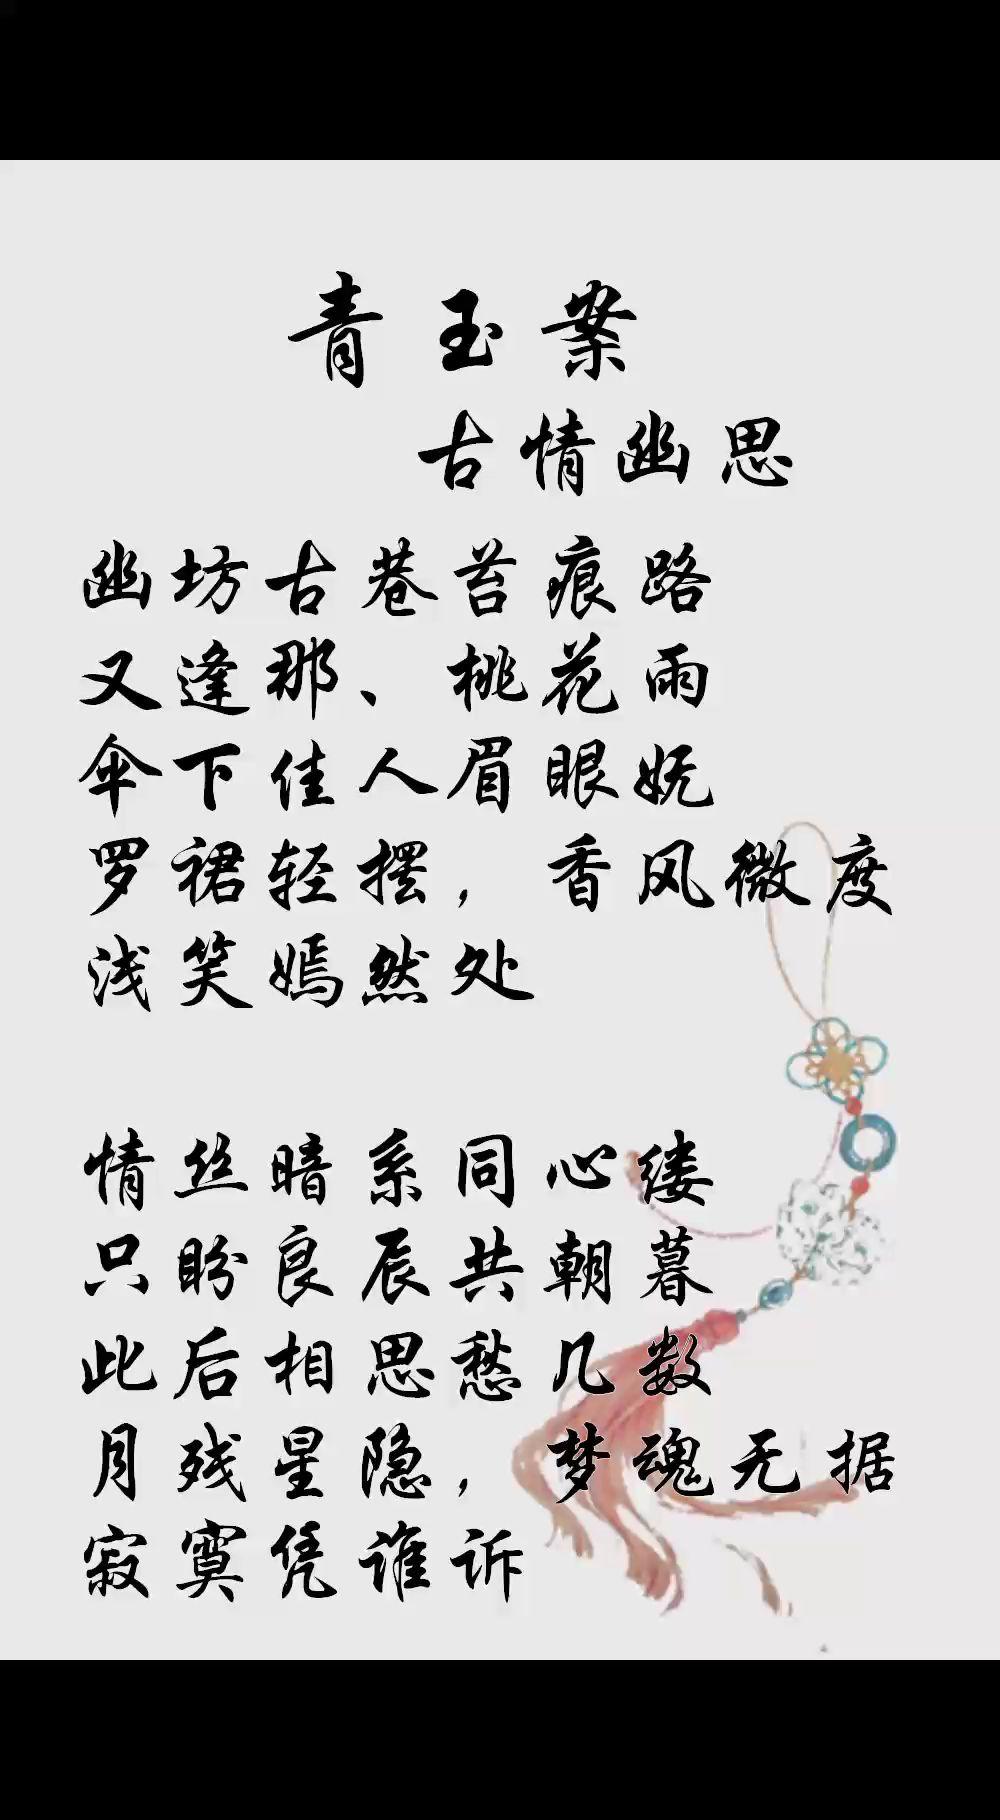 青玉案
古情幽思
幽坊古巷苔痕路
又逢那、桃花雨
伞下佳人眉眼妩
罗裙轻摆，香风微度
浅笑嫣然处
情丝暗系同心缕
只盼良辰共朝暮
此后相思愁几数
月残星隐，梦魂无据
寂寞凭谁诉